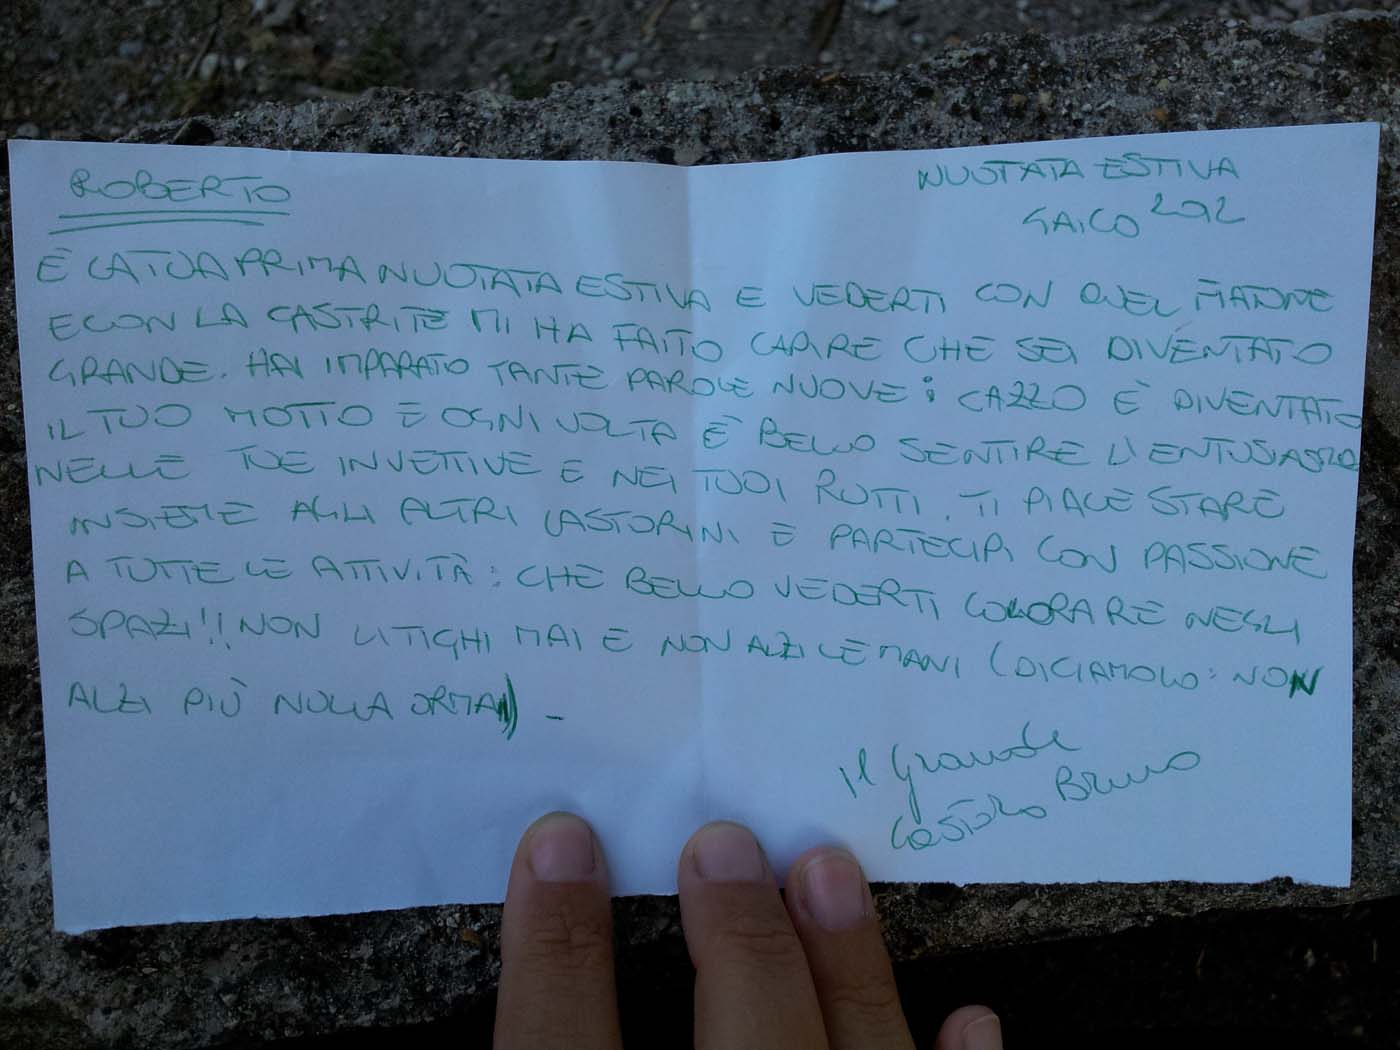 ROBERTO
NUOTATA ESTIVA
GAICO 2012
È LA TUA PRIMA NUOTATA ESTIVA E VEDERTI CON QUEL
E CON LA GASTRITE MI HA FATTO CAPIRE CHE SEI DIVENTATO
GRANDE. HAI IMPARATO TANTE PAROLE NUOVE: CAZZO È DIVENTATO
IL TUO MOTTO E OGNI VOLTA È BELLO SENTIRE L'ENTUSIASMO
NELLE TUE INVETTIVE E NEI TUOI RUTTI. TI PIACE STARE
INSIEME AGLI ALTRI CASTORINI E PARTECIPI CON PASSIONE
A TUTTE LE ATTIVITÀ: CHE BELLO VEDERTI COLORARE NEGLI
SPAZI!! NON LITIGHI MAI E NON ALZI LE MANI (DICIAMOLO: NON
ALZI PIÙ NULLA ORMAI) -
Il Grande
Castoro Bruno